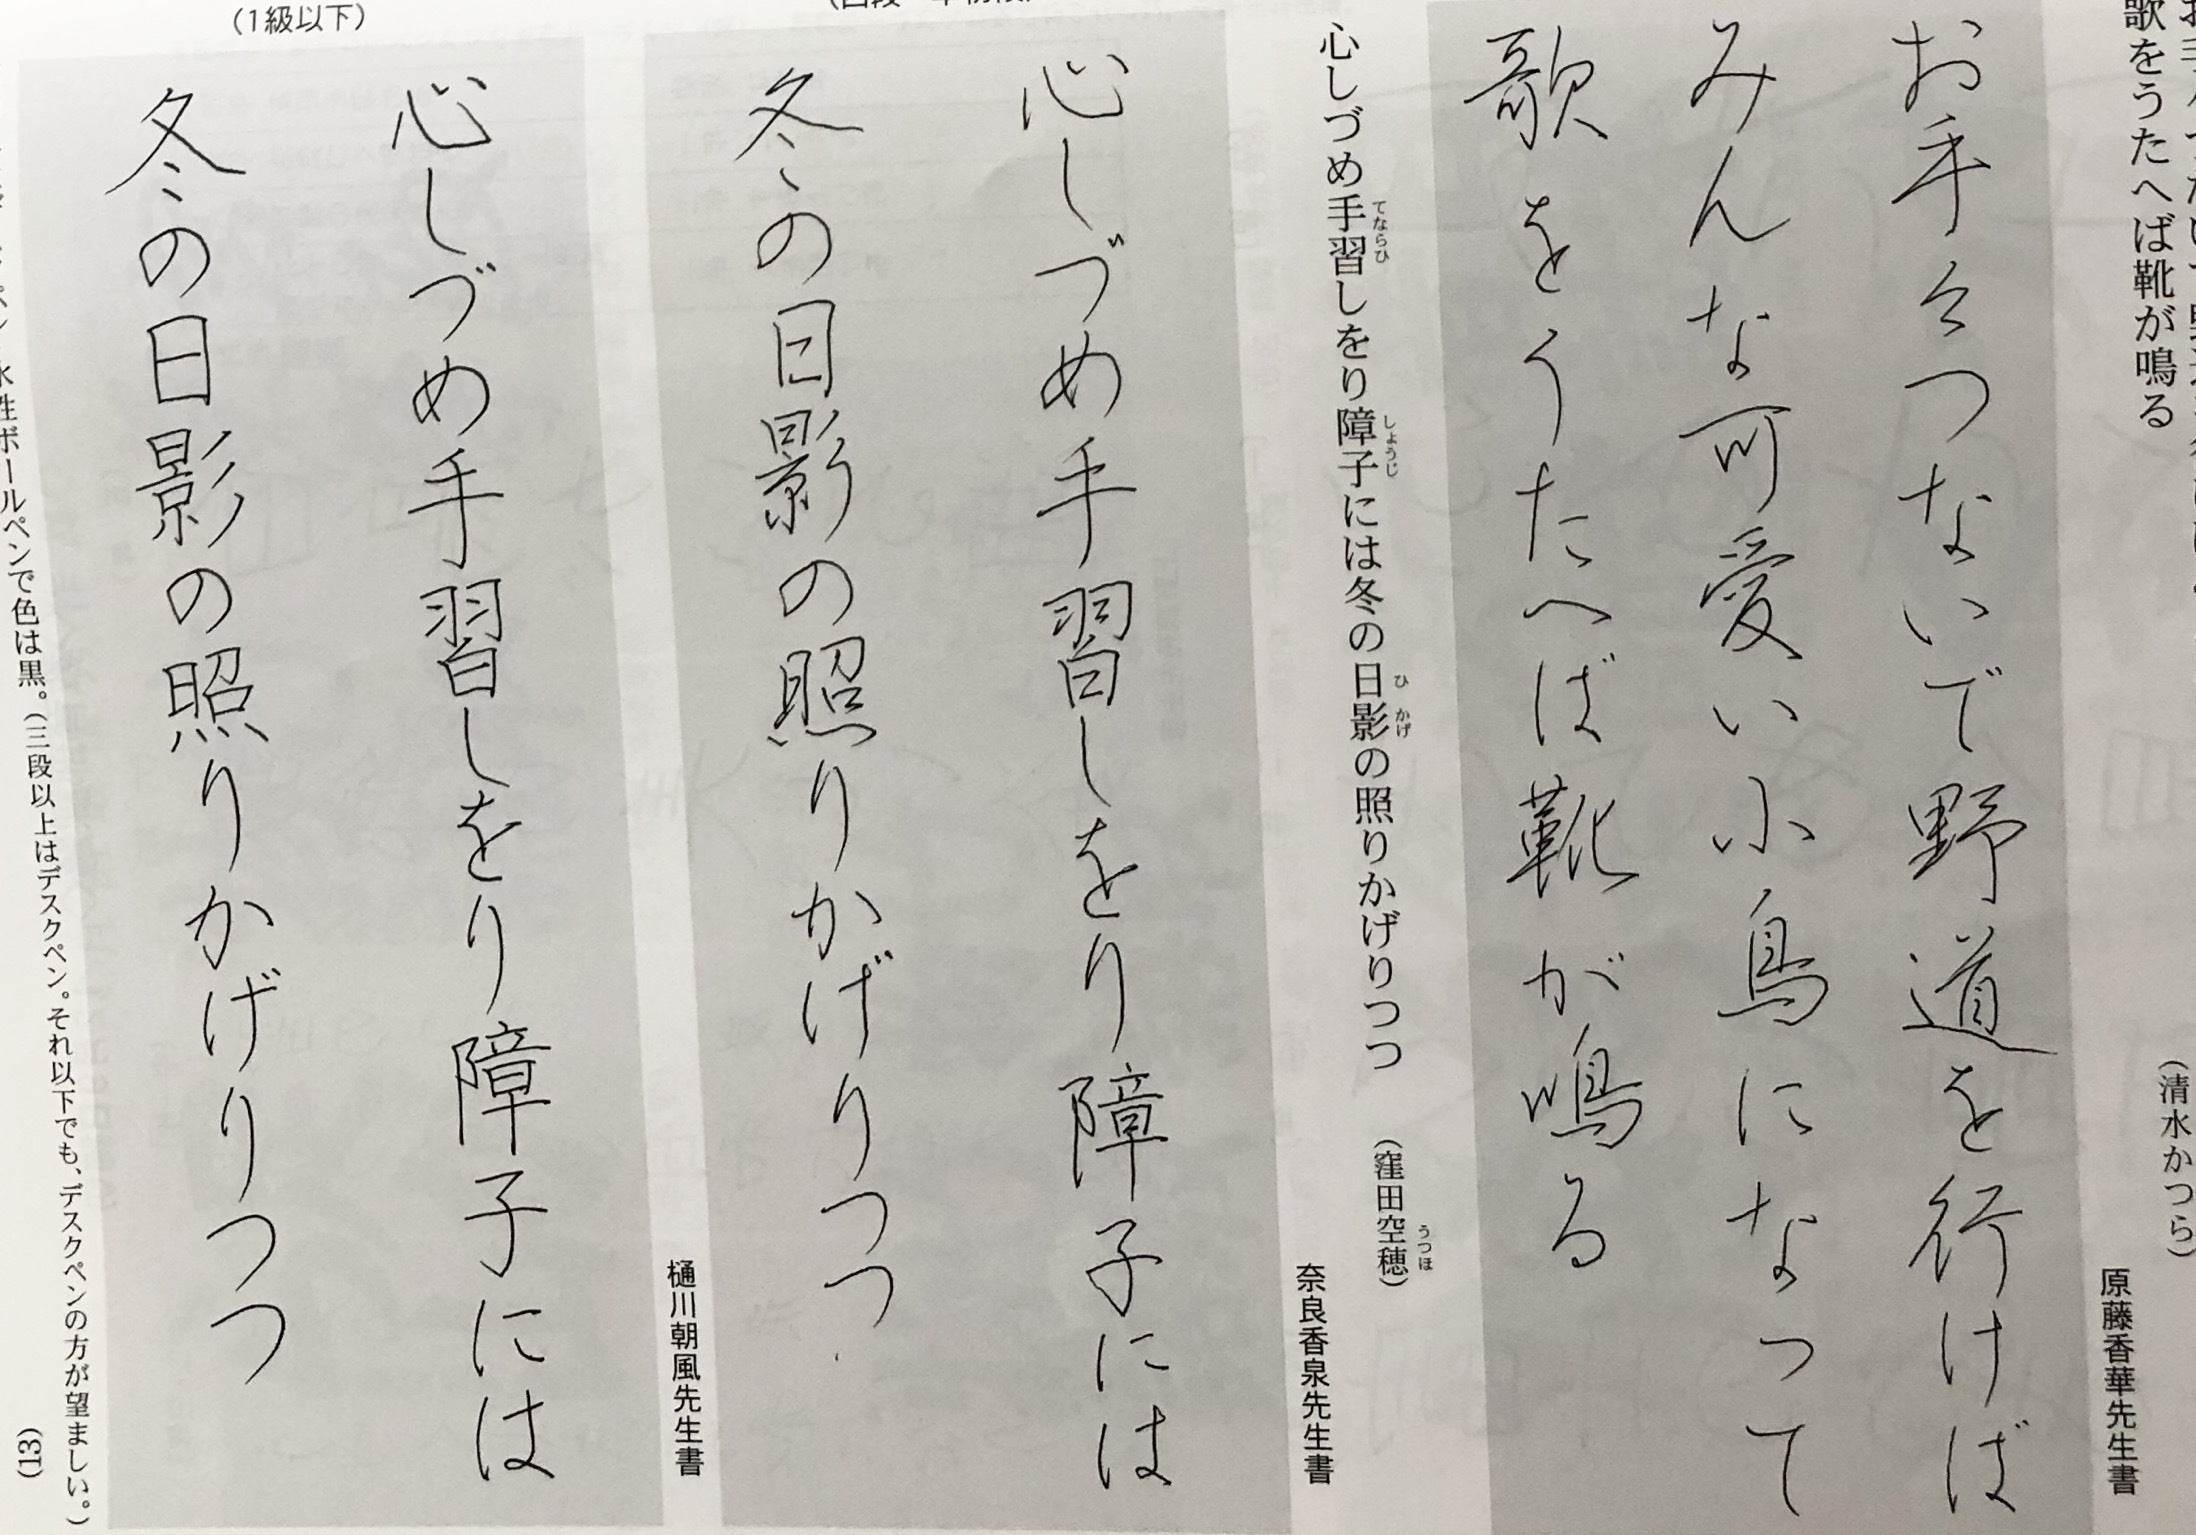 歌をうたへば靴が鳴る
（清水かつら）
原藤香華先生書
お手々つないで野道を行けば
みんな可愛い小鳥になって
歌をうたへば靴が鳴る
心しづめ手習しをり障子には冬の日影の照りかげりつつ
てならひ
しょうじ
ひ かげ
（窪田空穂）
うつほ
奈良香泉先生書
心しづめ手習しをり障子には
冬の日影の照りかげりつつ
樋川朝風先生書
（1級以下）
心しづめ手習しをり障子には
冬の日影の照りかげりつつ
水性ボールペンで色は黒。（三段以上はデスクペン。それ以下でも、デスクペンの方が望ましい。）
（13）